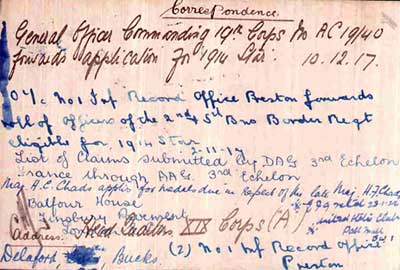 Correspondence.
General Officer Commanding 19th Corps No AC 19/40
forwards application for 1914 Star. 10.12.17.
O i/c No 1 Inf Record Office Preston forwards
of Officers of the 2nd & 5th Bns Border Regt
eligible for 1914 Star 11-17
List of Claims submitted by DAG 3rd Echelon
France through AAG. 3rd Echelon
Mrs A.C. Chads applies for medals due in respect of the late Maj. H.F. Chads
Balfour House
Finsbury Pavement
United Club
Pall Mall
Address. Head Quarters XIX Corps (A)
Delaford, Bucks. (2) No 1 Inf Record Office
Preston